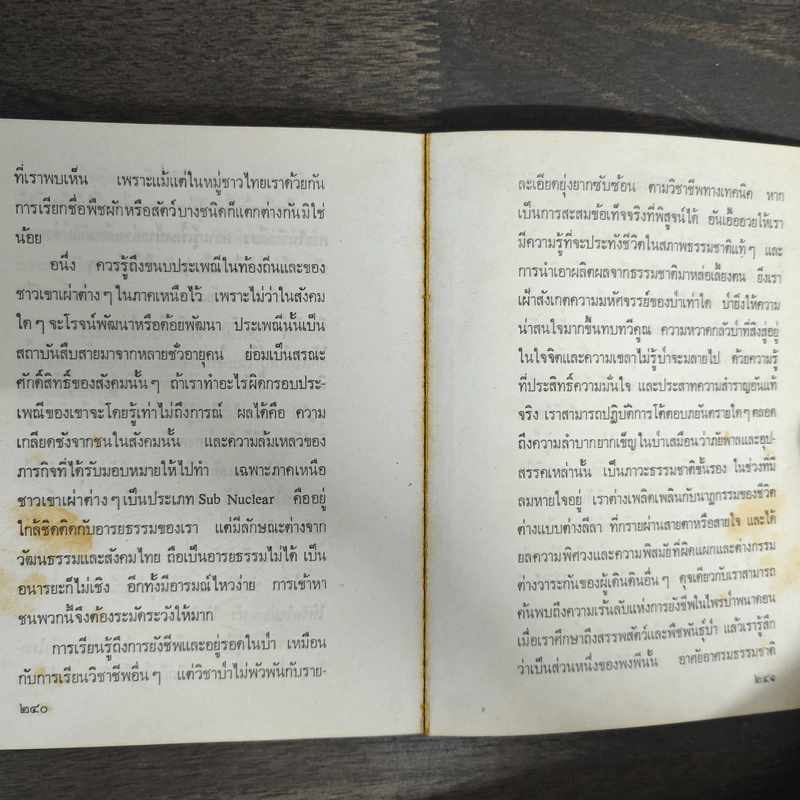 ที่เราพบเห็น เพราะแม้แต่ในหมู่ชาวไทยเราด้วยกัน
การเรียกชื่อพืชผักหรือสัตว์บางชนิดก็แตกต่างกันมิใช่
น้อย
อนึ่ง ควรรู้ถึงขนบประเพณีในท้องถิ่นและของ
ชาวเขาเผ่าต่างๆ ในภาคเหนือไว้ เพราะไม่ว่าในสังคม
ใดๆ จะโรจน์พัฒนาหรือด้อยพัฒนา ประเพณีนั้นเป็น
สถาบันสืบสายมาจากหลายชั่วอายุคน ย่อมเป็นสรณะ
ศักดิ์สิทธิ์ของสังคมนั้นๆ ถ้าเราทำอะไรผิดกรอบประ-
เพณีของเขาจะโดยรู้เท่าไม่ถึงการณ์ ผลได้คือ ความ
เกลียดชังจากชนในสังคมนั้น และความล้มเหลวของ
ภารกิจที่ได้รับมอบหมายให้ไปทำ เฉพาะภาคเหนือ
ชาวเขาเผ่าต่างๆ เป็นประเภท Sub Nuclear คืออยู่
ใกล้ชิดติดกับอารยธรรมของเรา แต่มีลักษณะต่างจาก
วัฒนธรรมและสังคมไทย ถือเป็นอารยธรรมไม่ได้ เป็น
อนารยะก็ไม่เชิง อีกทั้งมีอารมณ์ไหวง่าย การเข้าหา
ชนพวกนี้จึงต้องระมัดระวังให้มาก
การเรียนรู้ถึงการยังชีพและอยู่รอดในป่า เหมือน
กับการเรียนวิชาชีพอื่นๆ แต่วิชาป่าไม่พัวพันกับราย-
๒๔๐
ละเอียดยุ่งยากซับซ้อน ตามวิชาชีพทางเทคนิค หาก
เป็นการสะสมข้อเท็จจริงที่พิสูจน์ได้ อันเอื้ออวยให้เรา
มีความรู้ที่จะประทังชีวิตในสภาพธรรมชาติแท้ๆ และ
การนำเอาผลิตผลจากธรรมชาติมาหล่อเลี้ยงตน ยิ่งเรา
เฝ้าสังเกตความมหัศจรรย์ของป่าเท่าใด ป่ายิ่งให้ความ
น่าสนใจมากขึ้นทบทวีคูณ ความหวาดกลัวป่าที่สิงสู่อยู่
ในใจจิตและความเขลาไม่รู้ป่าจะมลายไป ด้วยความรู้
ที่ประสิทธิ์ความมั่นใจ และประสาทความสำราญอันแท้
จริง เราสามารถปฏิบัติการโต้ตอบภยันตรายใดๆ ตลอด
ถึงความลำบากยากเข็ญในป่าเสมือนว่าภัยพาลและอุป-
สรรคเหล่านั้น เป็นภาวะธรรมชาติขั้นรอง ในช่วงที่มี
ลมหายใจอยู่ เราต่างเพลิดเพลินกับนาฏกรรมของชีวิต
ต่างแบบต่างลีลา ที่กรายผ่านสายตาหรือสายใจ และได้
ยลความพิศวงและความพิสมัยที่ผิดแผกและต่างกรรม
ต่างวาระกันของผู้เดินดินอื่นๆ ดุจเดียวกับเราสามารถ
ค้นพบถึงความเร้นลับแห่งการยังชีพในไพรป่าพนาดอน
เมื่อเราศึกษาถึงสรรพสัตว์และพืชพันธุ์ป่า แล้วเรารู้สึก
ว่าเป็นส่วนหนึ่งของพงพีนั้น อาศัยอาศรมธรรมชาติ
๒๔๑